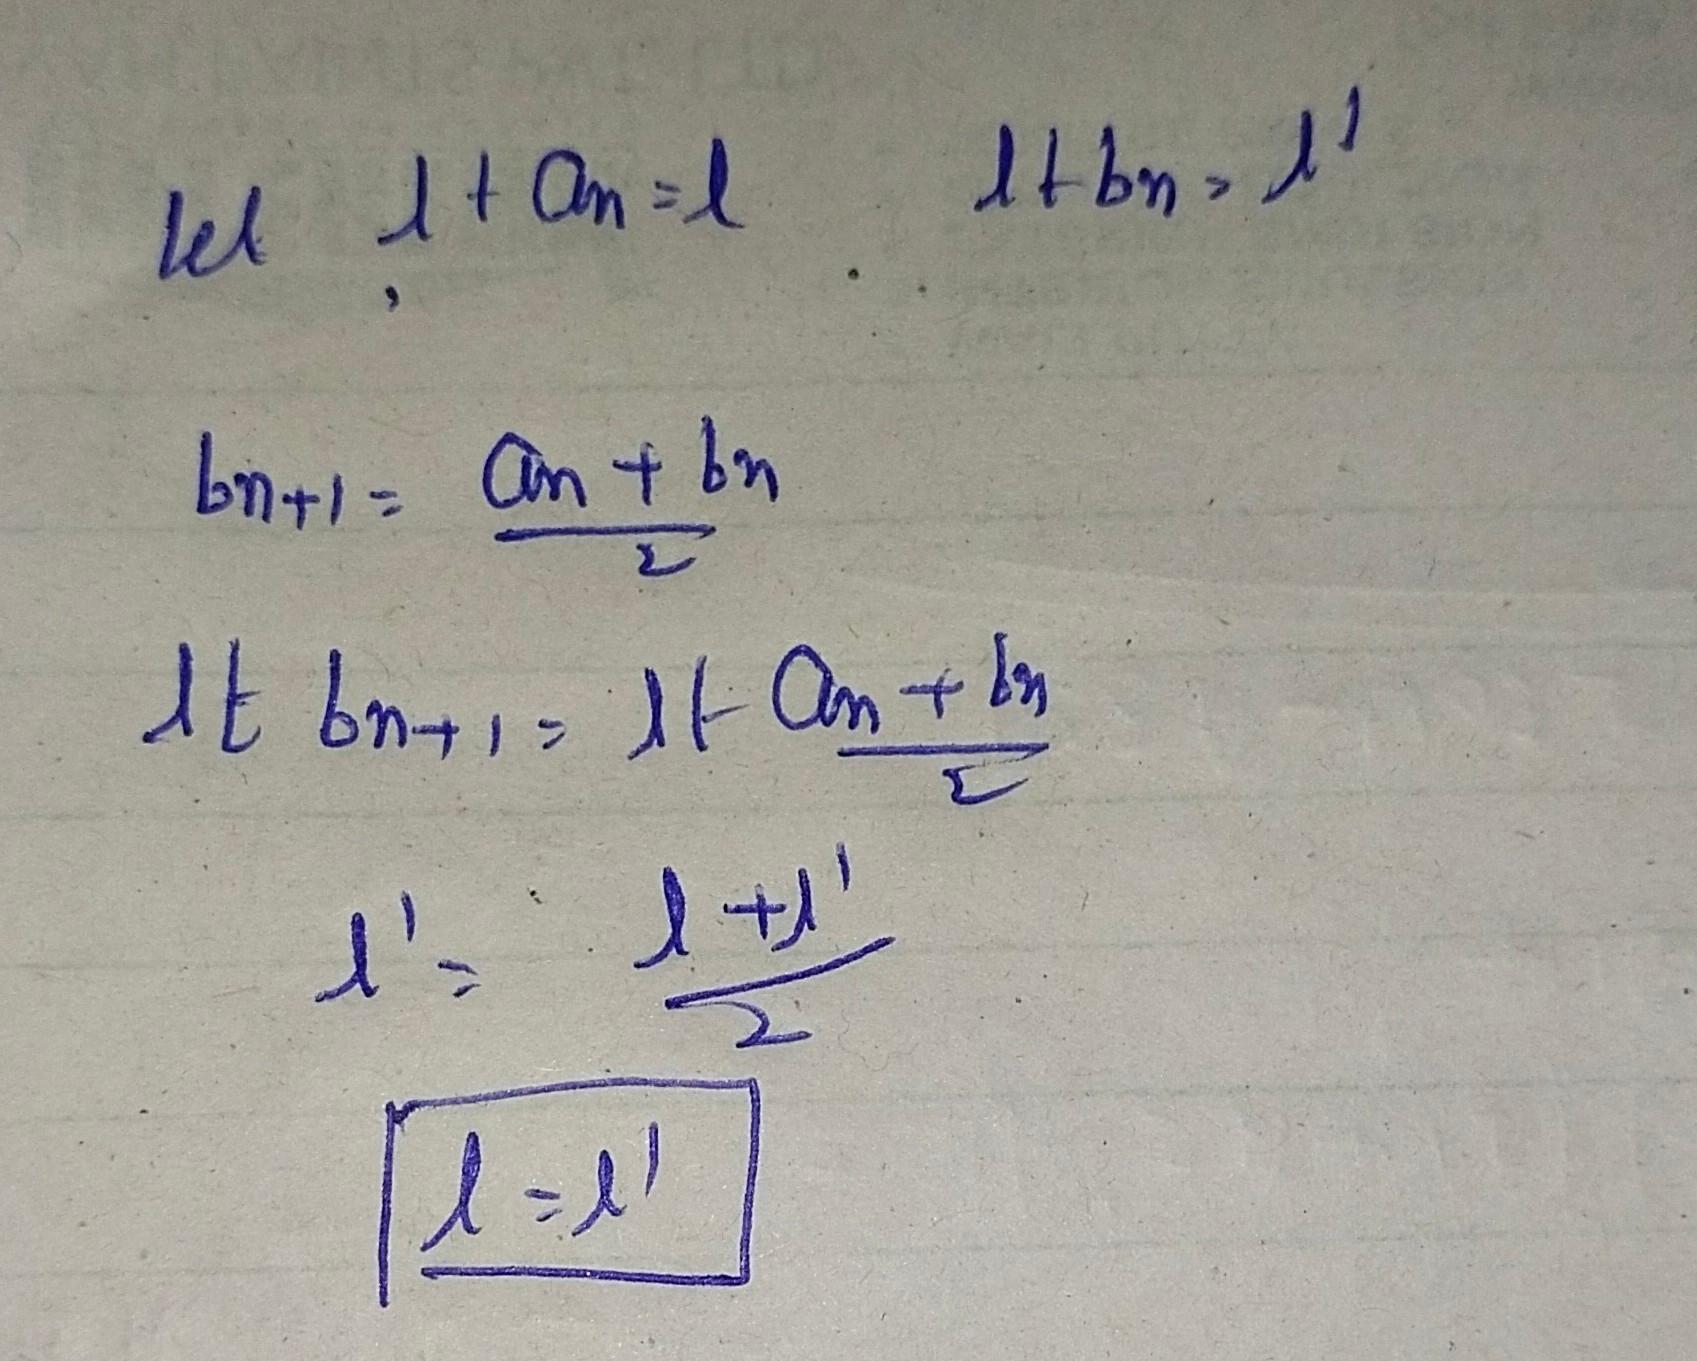 let lt an = l lt bn = l'
bn+1 = an + bn / 2
lt bn+1 = lt an + bn / 2
l' = l + l' / 2
l = l'